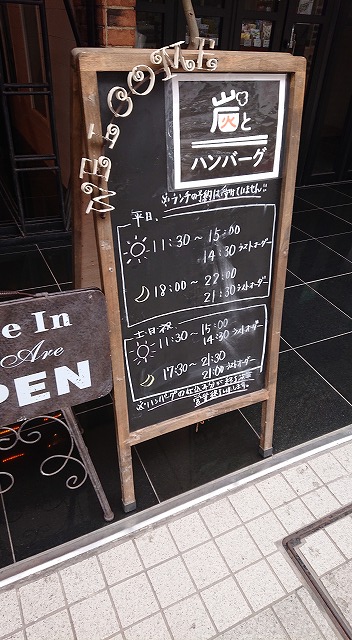 WELCOME
炭と
ハンバーグ
※ランチの予約は受けていません。
平日.
11:30〜15:00
14:30 ラストオーダー
18:00〜22:00
21:30 ラストオーダー
土日祝.
11:30〜15:00
14:30 ラストオーダー
17:30〜21:30
21:00 ラストオーダー
※ハンバーグの仕込み分が終了次第
営業終了致します。
e In
Are
PEN